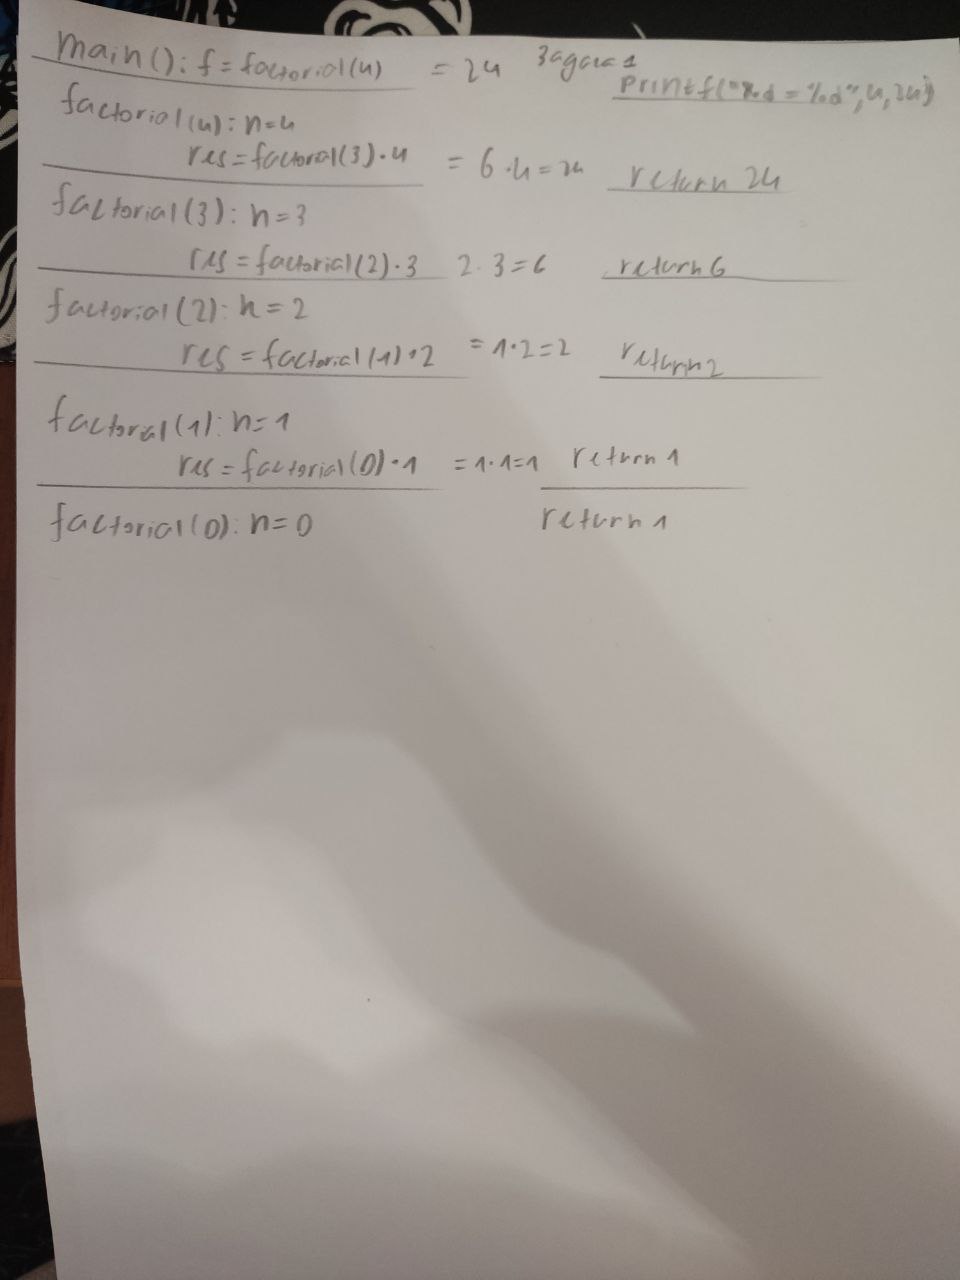 main(): f = factorial(4) = 24 Задача 1
printf("%d = %d", 4, 24)
factorial(4): n=4
res = factoral(3)·4 = 6·4=24 return 24
factorial(3): n=3
res = factorial(2)·3 2·3=6 return 6
factorial(2): n=2
res = factorial(1)·2 = 1·2=2 return 2
factoral(1): n=1
res = factorial(0)·1 = 1·1=1 return 1
factorial(0): n=0 return 1